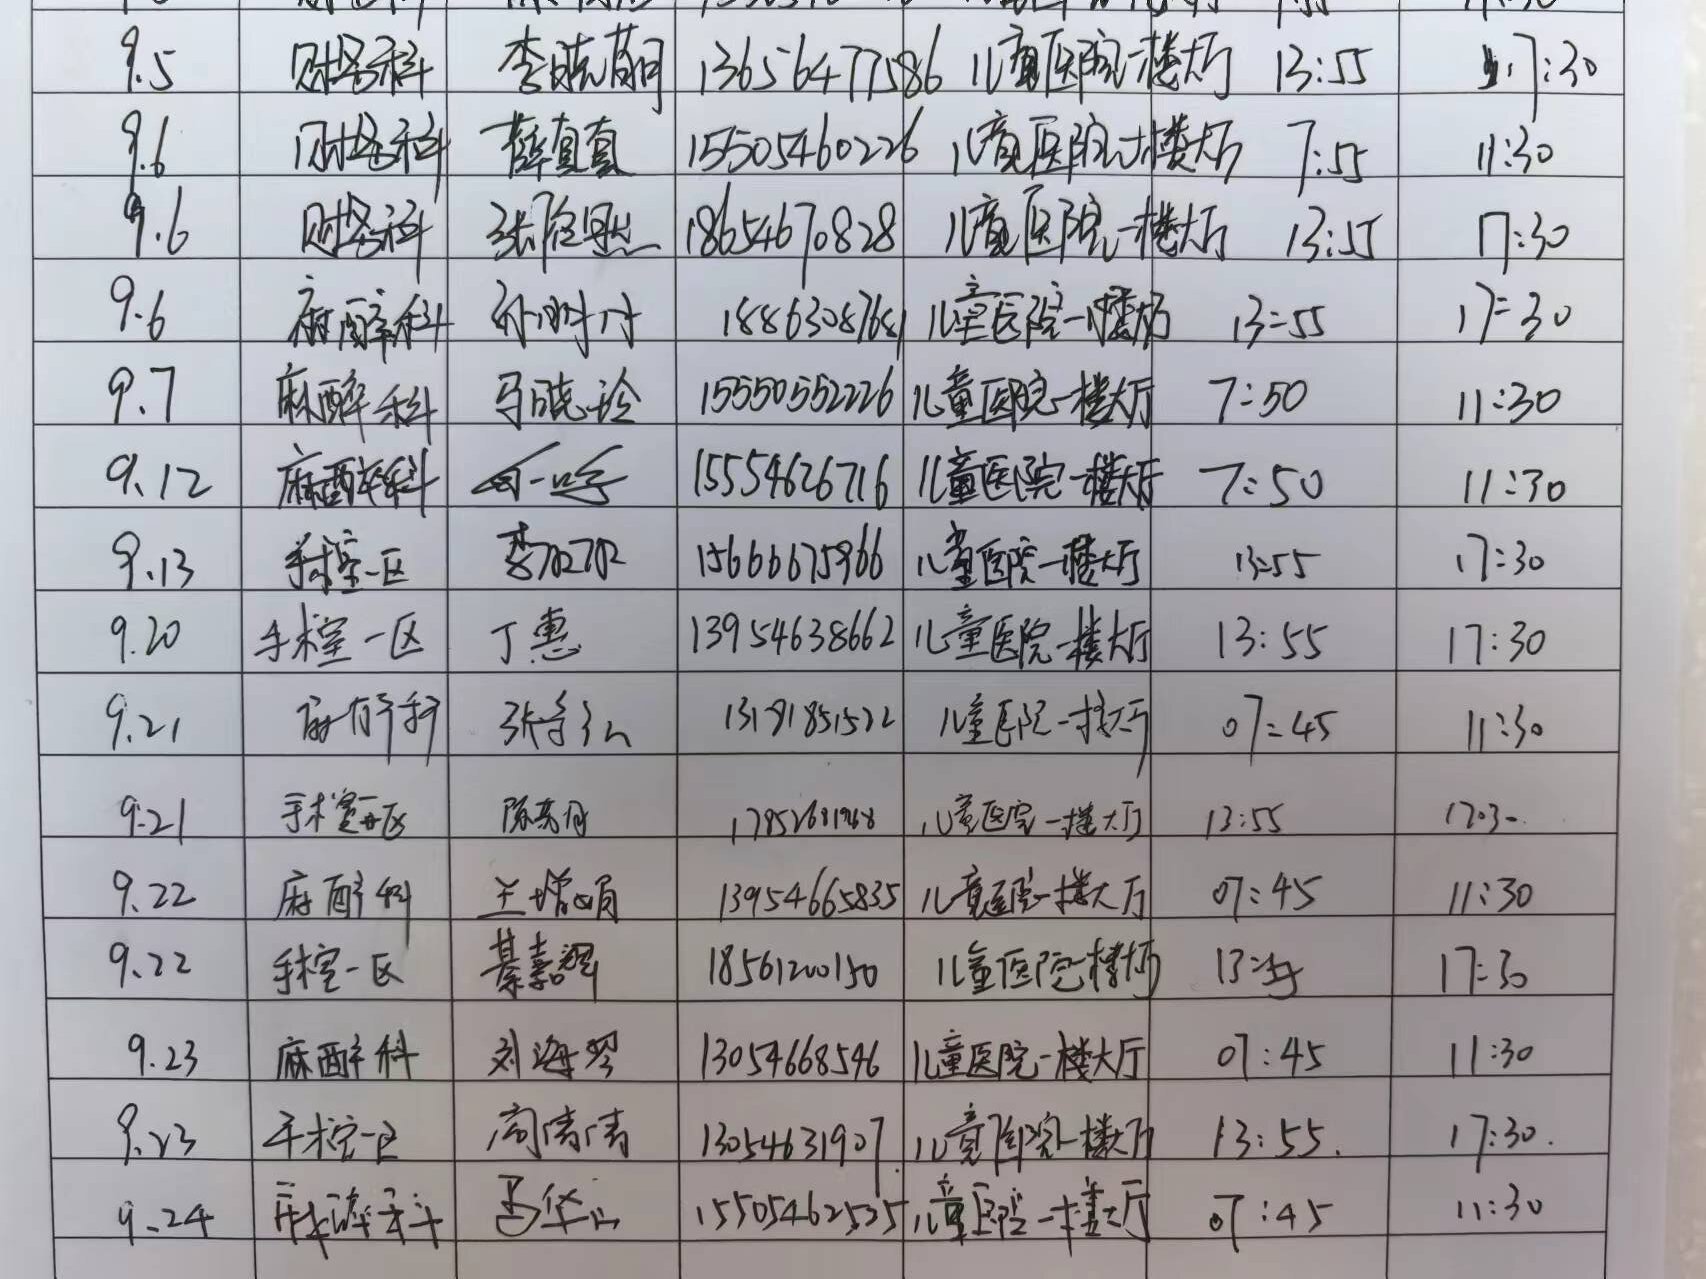 9.5 财务科 李晓 13656477586 儿童医院一楼大厅 13:55 17:30
9.6 财务科 薛真真 15505460226 儿童医院一楼大厅 7:55 11:30
9.6 财务科 18654670828 儿童医院一楼大厅 13:55 17:30
9.6 麻醉科 18863087681 儿童医院一楼大厅 13:55 17:30
9.7 麻醉科 马晓玲 15550552226 儿童医院一楼大厅 7:50 11:30
9.12 麻醉科 15554626716 儿童医院一楼大厅 7:50 11:30
9.13 手术室一区 15666675966 儿童医院一楼大厅 13:55 17:30
9.20 手术室一区 丁惠 13954638662 儿童医院一楼大厅 13:55 17:30
9.21 麻醉科 13181851522 儿童医院一楼大厅 07:45 11:30
9.21 手术室一区 儿童医院一楼大厅 13:55 17:30
9.22 麻醉科 王增娟 13954665835 儿童医院一楼大厅 07:45 11:30
9.22 手术室一区 綦嘉 18561200150 儿童医院一楼大厅 13:55 17:30
9.23 麻醉科 刘海琴 13054668546 儿童医院一楼大厅 07:45 11:30
9.23 手术室一区 高清清 13054631907 儿童医院一楼大厅 13:55. 17:30.
9.24 麻醉科 15505462525 儿童医院一楼大厅 07:45 11:30